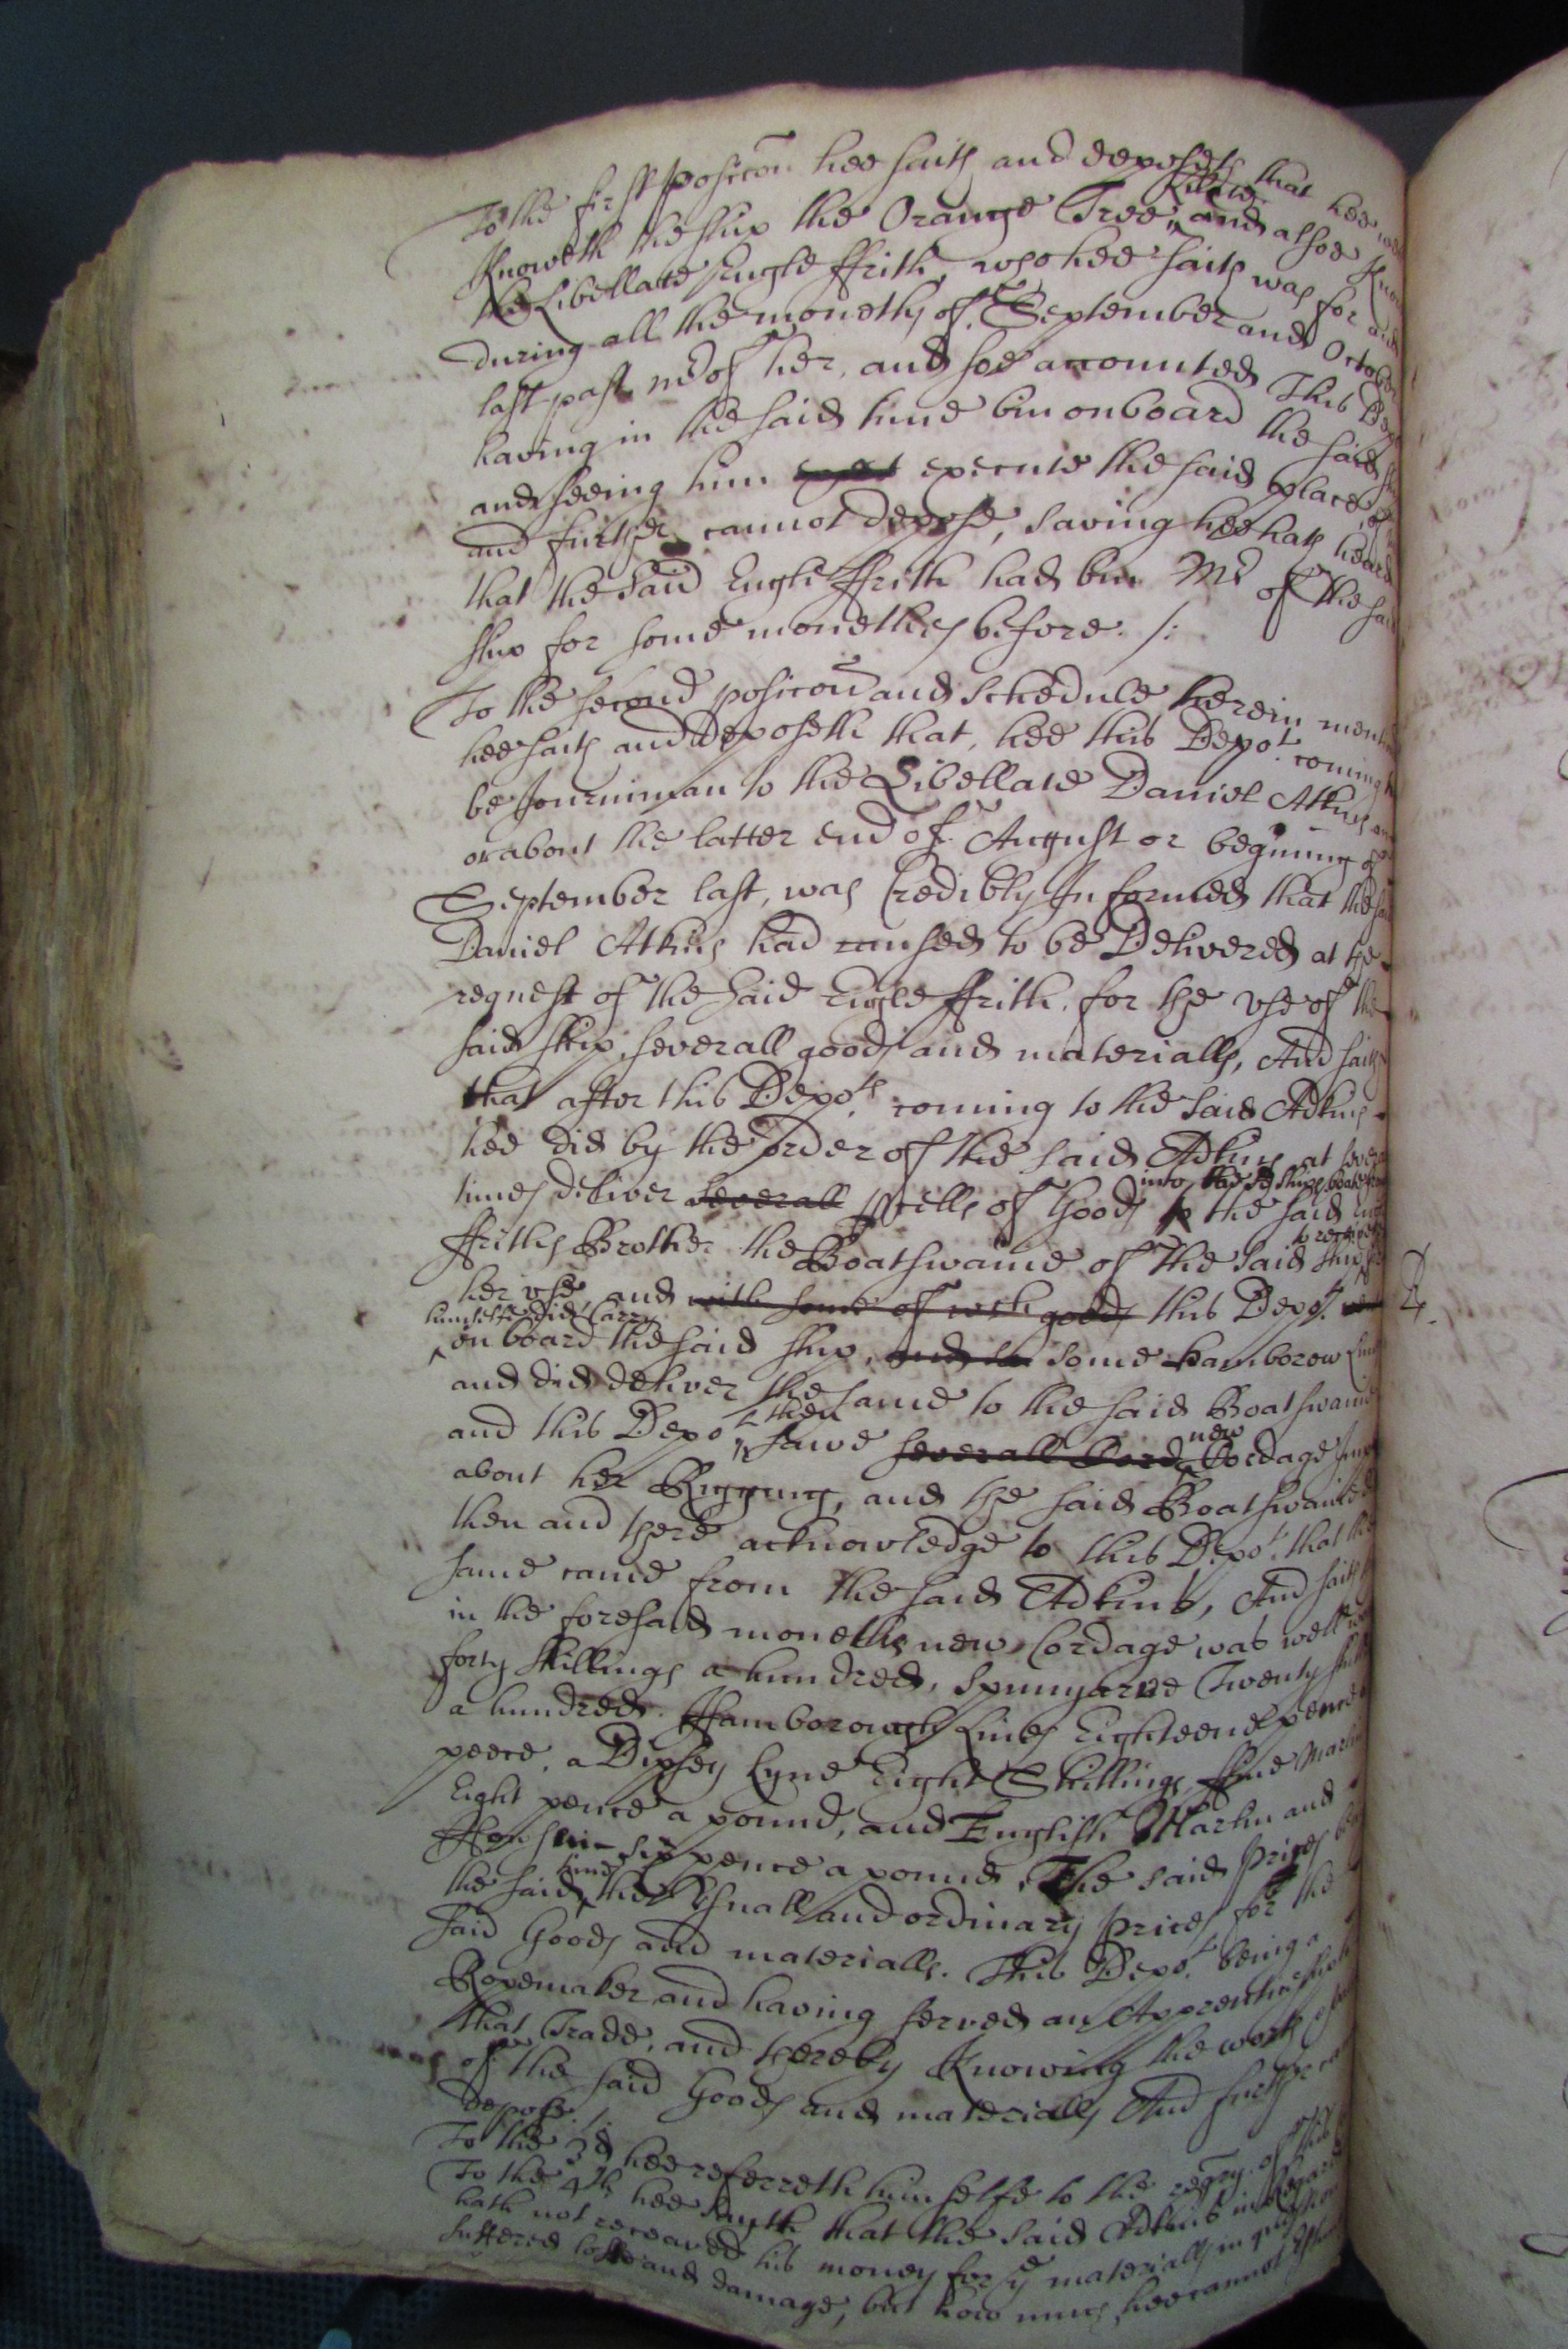 To the first posicon hee saith and deposeth that hee well
Knoweth the shipp the Orange Tree Libellate and alsoe Know
the Libellate Engle ffrith, who hee saith was for and
during all the moneths of September and October
last past Mr of her, and soe accounted This Dept
having in the said time bin onboard the said ship
and seeing him execute the said place of
and further cannot depose, saving hee hath heard
that the said Engle ffrith had bin Mr of the said
ship for some monethes before ./:
To the second posicon and schedule therein ment
hee saith and deposeth that, hee this Depot. coming to
be Journiman to the Libellate Daniel Atkins
or about the latter end of August or begining of
September last, was Credibly Informed that the said
Daniel Atkins had caused to be Delivered at the
request of the said Engle ffrith. for the use of the
said ship, severall goods and materialls, And saith
that after this Depots. coming to the said Adkins
hee did by the order of the said Adkins at severall
times deliver severall pcells of Goods into the sd ships boate the said
ffriths Brother the Boatswaine of the said ship to receive
her use, and with some of wch goods this Depot.
himselfe did Carry on board the said ship, and some hamborow Lines
and did deliver the same to the said Boatswaine
and this Depot then sawe severall Cord new Cordage
about her Rigging, and the said Boatswaine
then and there acknowledge to this Depot. that the
same came from the said Adkins, And saith
in the foresaid moneths new Cordage was well
forty shillings a hundred, spunyarne Twenty shill
a hundred. Hamborough Lines Eighteene pence a
peece, a Dipsey Lyne Eight Shillings ffine Marlin
Eight pence a pound, and English Marlin and
Howslin six pence a pound, The said prices
the said time the usuall and ordinary prices for the
said Goods and materialls. This Depot. being a
Ropemaker and having served an Apprentiship
that Trade, and thereby Knowing the worth
of the said Goods and materialls And further
depose. /:
To the 3d hee referreth himselfe to the regry. of this
To the 4th. hee sayth that the said Adkins in Regard
hath not receaved his money for ye materialls in question
suffered losse and damage, but how much hee cannot